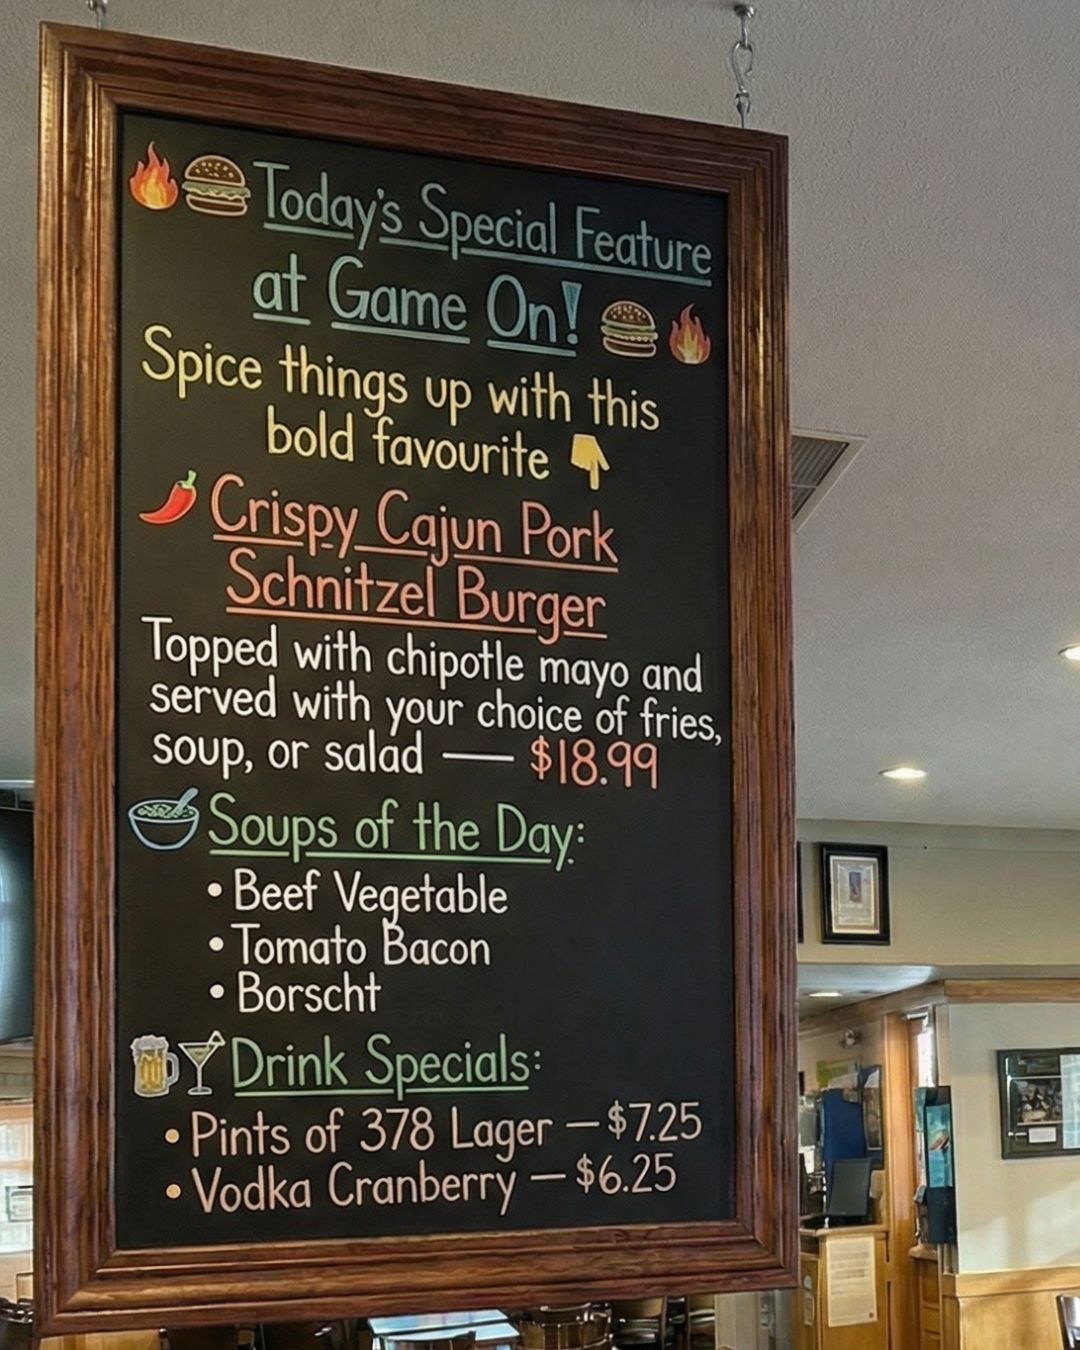 Today's Special Feature
at Game On!
Spice things up with this
bold favourite
Crispy Cajun Pork
Schnitzel Burger
Topped with chipotle mayo and
served with your choice of fries,
soup, or salad — $18.99
Soups of the Day:
• Beef Vegetable
• Tomato Bacon
• Borscht
Drink Specials:
• Pints of 378 Lager — $7.25
• Vodka Cranberry — $6.25